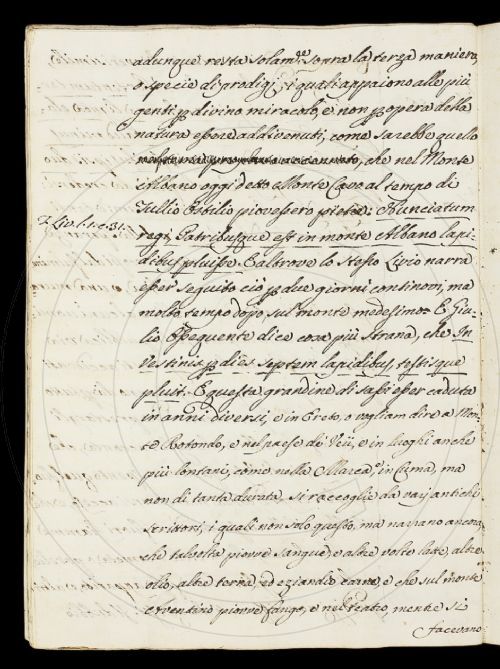 adunque resta solam.te sopra la terza maniera,
o specie di prodigi, i quali appaiono alle più
genti p divino miracolo, e non p opera della
natura essere addivenuti, come sarebbe quello
che nel Monte
Albano oggi detto Monte Cavo al tempo di
Tullio Ostilio piovessero pietre: Nunciatum
Liv. l. 1. c. 31. regi, Patribusque est in monte Albano lapi-
dibus pluisse. E altrove lo stesso Livio narra
esser seguito ciò p due giorni continovi, ma
molto tempo dopo sul monte medesimo. E Giu-
lio Ossequente dice cosa più strana, che In
Vestinis p dies septem lapidibus, testisque
pluit. E questa grandine di sassi esser caduta
in anni diversi, e in Ereto, o vogliam dire a Mon-
te Rotondo, e nel paese de' Vei, e in luoghi anche
più lontani, come nella Marca, in Cuma, ma
non di tanta durata, si raccoglie da varj antichi
scrittori, i quali non solo questo, ma narrano ancora,
che talvolta piovve sangue, e altre volte latte, altre
olio, altre terra, ed eziandio carne, e che sul monte
Aventino piovve fango, e nel teatro, mentre si
facevano